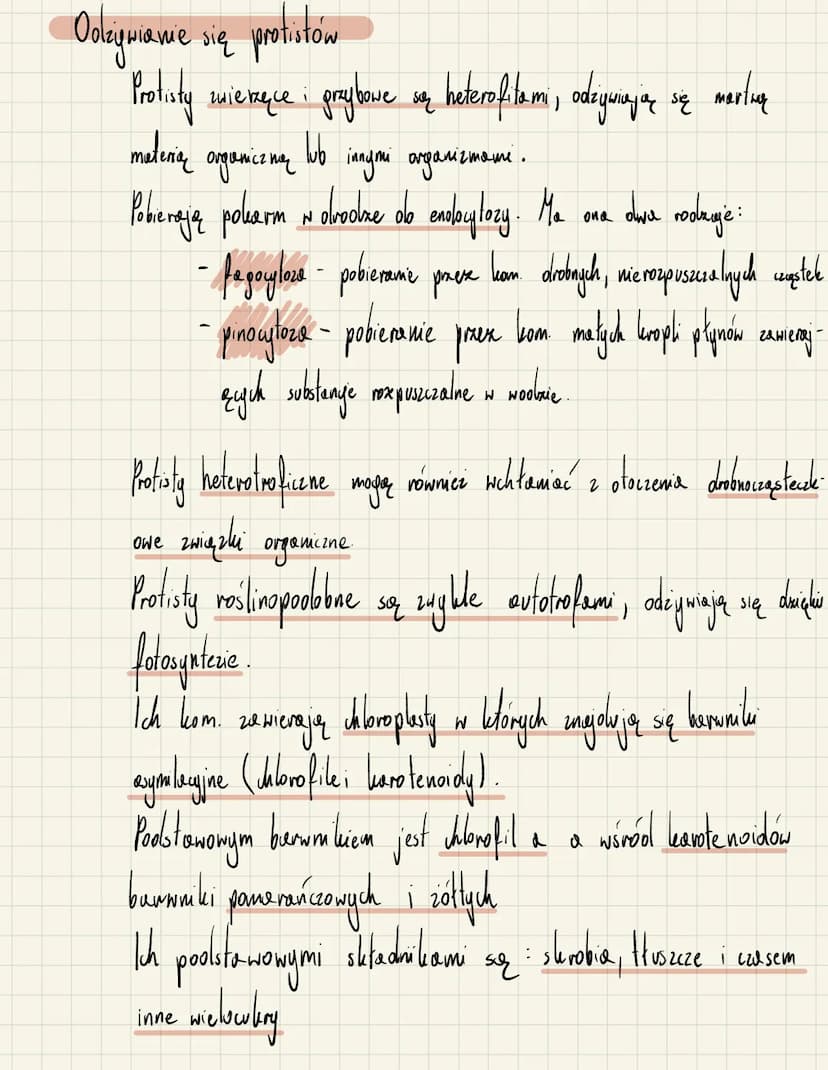 Odżywianie się protistów
Protisty zwierzęce i grzybowe są heterofitami, odżywiają się martwą
materią organiczną lub innymi organizmami.
Pobierają pokarm w drodze do endocytozy. Ma ona dwa rodzaje:
- fagocytoza - pobieranie przez kom. drobnych, nierozpuszczalnych cząstek
- pinocytoza - pobieranie przez kom. małych kropli płynów zawieraj-
ących substancje rozpuszczalne w wodzie.
Protisty heterotroficzne mogą również wchłaniać z otoczenia drobnocząsteczk-
owe związki organiczne.
Protisty roślinopodobne są zwykle autotrofami, odżywiają się dzięki
fotosyntezie.
Ich kom. zawierają chloroplasty w których znajdują się barwniki
asymilacyjne (chlorofile i karotenoidy).
Podstawowym barwnikiem jest chlorofil a a wśród karotenoidów
barwniki pomarańczowych i żółtych
Ich podstawowymi składnikami są: skrobia, tłuszcze i czasem
inne wielocukry